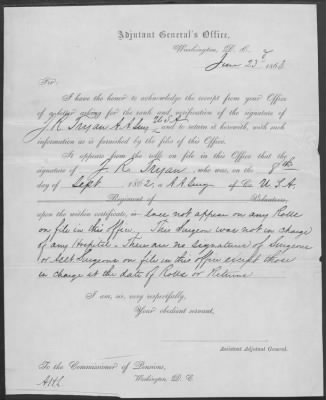 Adjutant General's Office,
Washington, D. C.
June 23d 1863
Sir:
I have the honor to acknowledge the receipt from your Office
of a letter asking for the rank and verification of the signature of
J. R. Tryan A. A. Surg U.S.A. and to return it herewith, with such
information as is furnished by the files of this Office.
It appears from the rolls on file in this Office that the
signature of J. R. Tryan, who was, on the 8th
day of Sept 1862, a A. A. Surg U.S.A.
Regiment of Volunteers,
upon the within certificate, is
does not appear on any Rolls
on file in this office. This Surgeon was not in charge
of any Hospital. There are no signatures of Surgeons
or Asst Surgeons on file in this office except those
in charge at the date of Rolls or Returns
I am, sir, very respectfully,
Your obedient servant,
Assistant Adjutant General.
To the Commissioner of Pensions,
Washington, D. C.